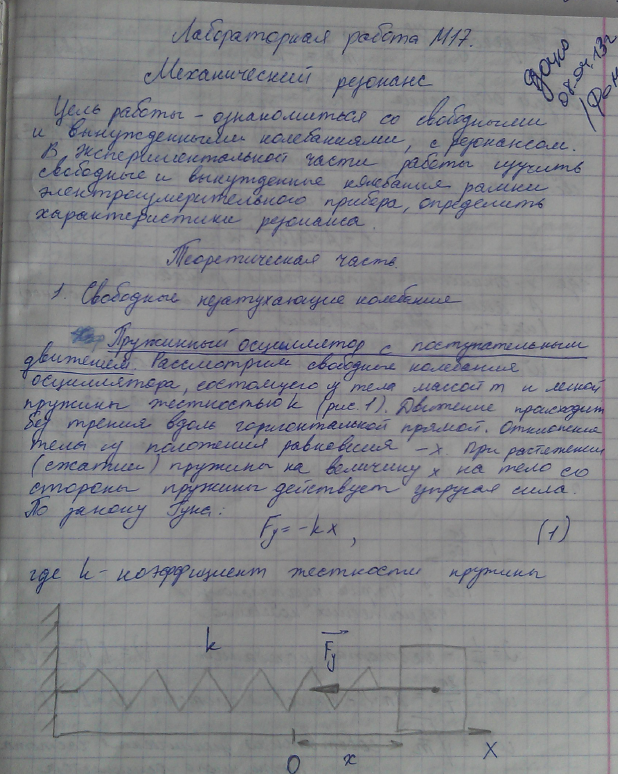 Лабораторная работа М17.
Механический резонанс
08.04.13г
Цель работы - ознакомиться со свободными
и вынужденными колебаниями, с резонансом.
В экспериментальной части работы изучить
свободные и вынужденные колебания рамки
электроизмерительного прибора, определить
характеристики резонанса.
Теоретическая часть.
1. Свободные незатухающие колебания
Пружинный осциллятор с поступательным
движением. Рассмотрим свободные колебания
осциллятора, состоящего из тела массой m и легкой
пружины жесткостью k (рис. 1). Движение происходит
без трения вдоль горизонтальной прямой. Отклонение
тела из положения равновесия - x. При растяжении
(сжатии) пружины на величину x на тело со
стороны пружины действует упругая сила.
По закону Гука:
Fу = -kx, (1)
где k - коэффициент жесткости пружины
k Fу
O x X